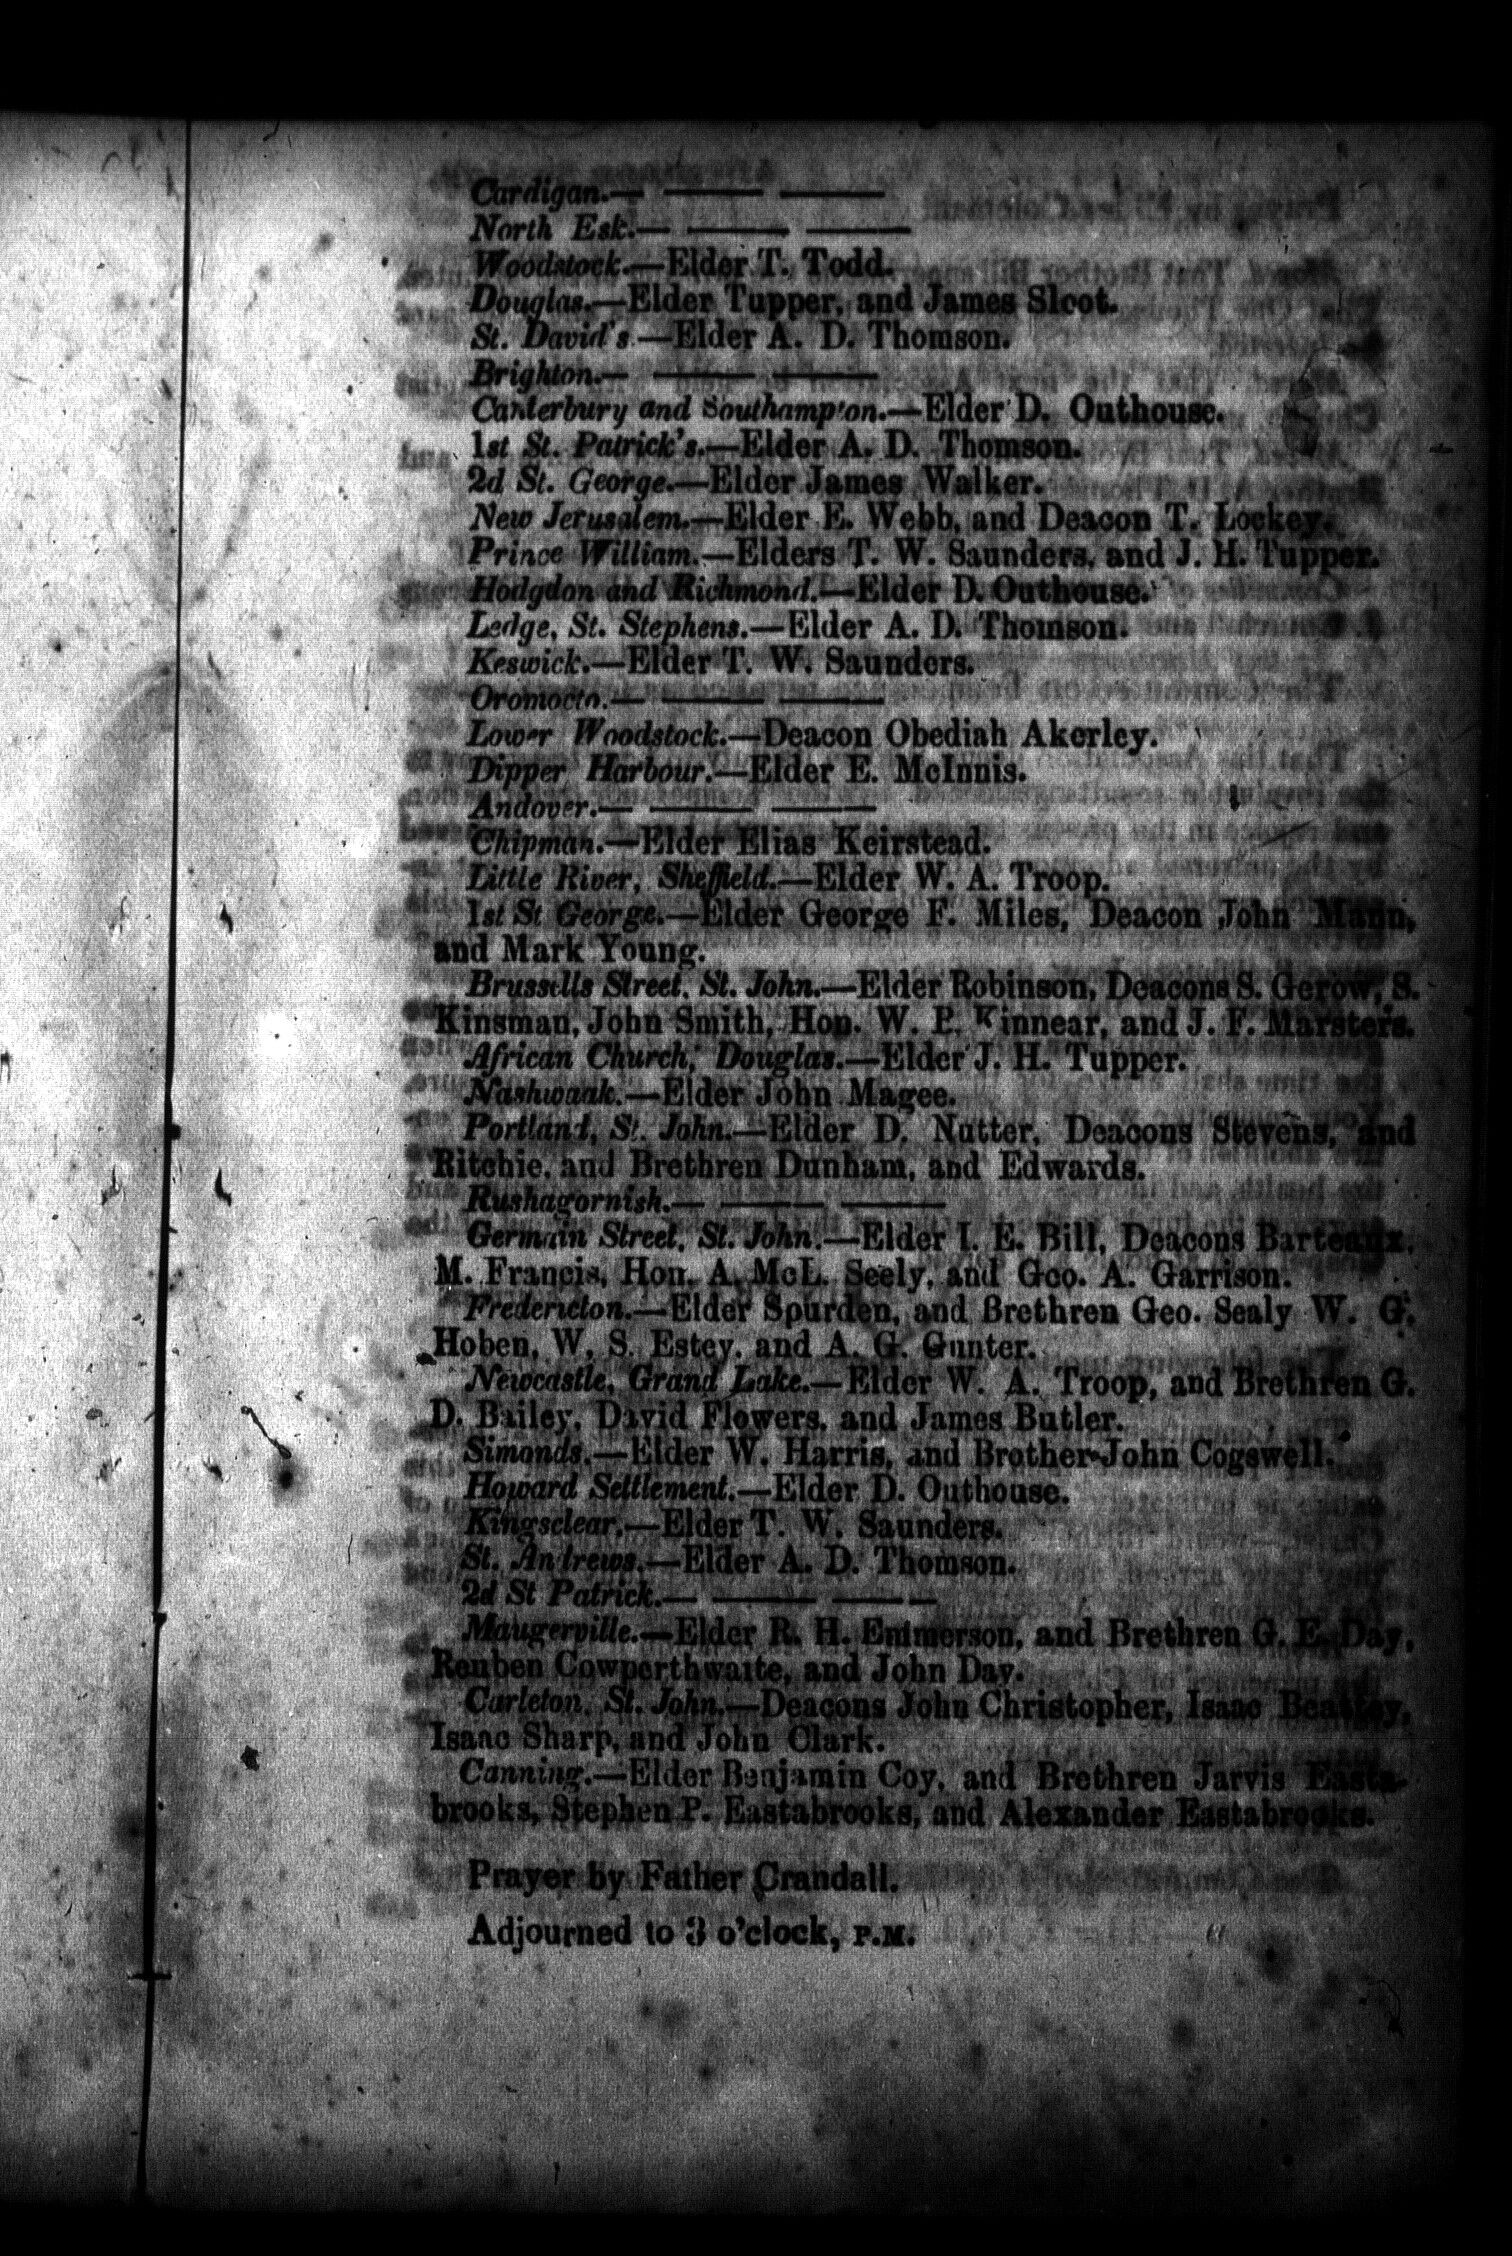 Cardigan.— —— ——
North Esk.— —— ——
Woodstock.—Elder T. Todd.
Douglas.—Elder Tupper, and James Sloot.
St. David's.—Elder A. D. Thomson.
Brighton.— —— ——
Canterbury and Southampton.—Elder D. Outhouse.
1st St. Patrick's.—Elder A. D. Thomson.
2d St. George.—Elder James Walker.
New Jerusalem.—Elder E. Webb, and Deacon T. Lockey.
Prince William.—Elders T. W. Saunders, and J. H. Tupper.
Hodgdon and Richmond.—Elder D. Outhouse.
Ledge, St. Stephens.—Elder A. D. Thomson.
Keswick.—Elder T. W. Saunders.
Oromocto.— —— ——
Lower Woodstock.—Deacon Obediah Akerley.
Dipper Harbour.—Elder E. McInnis.
Andover.— —— ——
Chipman.—Elder Elias Keirstead.
Little River, Sheffield.—Elder W. A. Troop.
1st St George.—Elder George F. Miles, Deacon John Mann,
and Mark Young.
Brussells Street, St. John.—Elder Robinson, Deacons S. Gerow, S.
Kinsman, John Smith, Hon. W. B. Kinnear, and J. F. Marsters.
African Church, Douglas.—Elder J. H. Tupper.
Nashwaak.—Elder John Magee.
Portland, St. John.—Elder D. Nutter, Deacons Stevens, and
Ritchie, and Brethren Dunham, and Edwards.
Rushagornish.— —— ——
Germain Street, St. John.—Elder I. E. Bill, Deacons Barteaux,
M. Francis, Hon. A. McL. Seely, and Geo. A. Garrison.
Fredericton.—Elder Spurden, and Brethren Geo. Sealy W. G.
Hoben, W. S. Estey, and A. G. Gunter.
Newcastle, Grand Lake.—Elder W. A. Troop, and Brethren G.
D. Bailey, David Flowers, and James Butler.
Simonds.—Elder W. Harris, and Brother John Cogswell.
Howard Settlement.—Elder D. Outhouse.
Kingsclear.—Elder T. W. Saunders.
St. Andrews.—Elder A. D. Thomson.
2d St Patrick.— —— ——
Maugerville.—Elder R. H. Emmerson, and Brethren G. E. Day,
Reuben Cowperthwaite, and John Day.
Carleton, St. John.—Deacons John Christopher, Isaac Beattey,
Isaac Sharp, and John Clark.
Canning.—Elder Benjamin Coy, and Brethren Jarvis Easta-
brooks, Stephen P. Eastabrooks, and Alexander Eastabrooks.
Prayer by Father Crandall.
Adjourned to 3 o'clock, P.M.